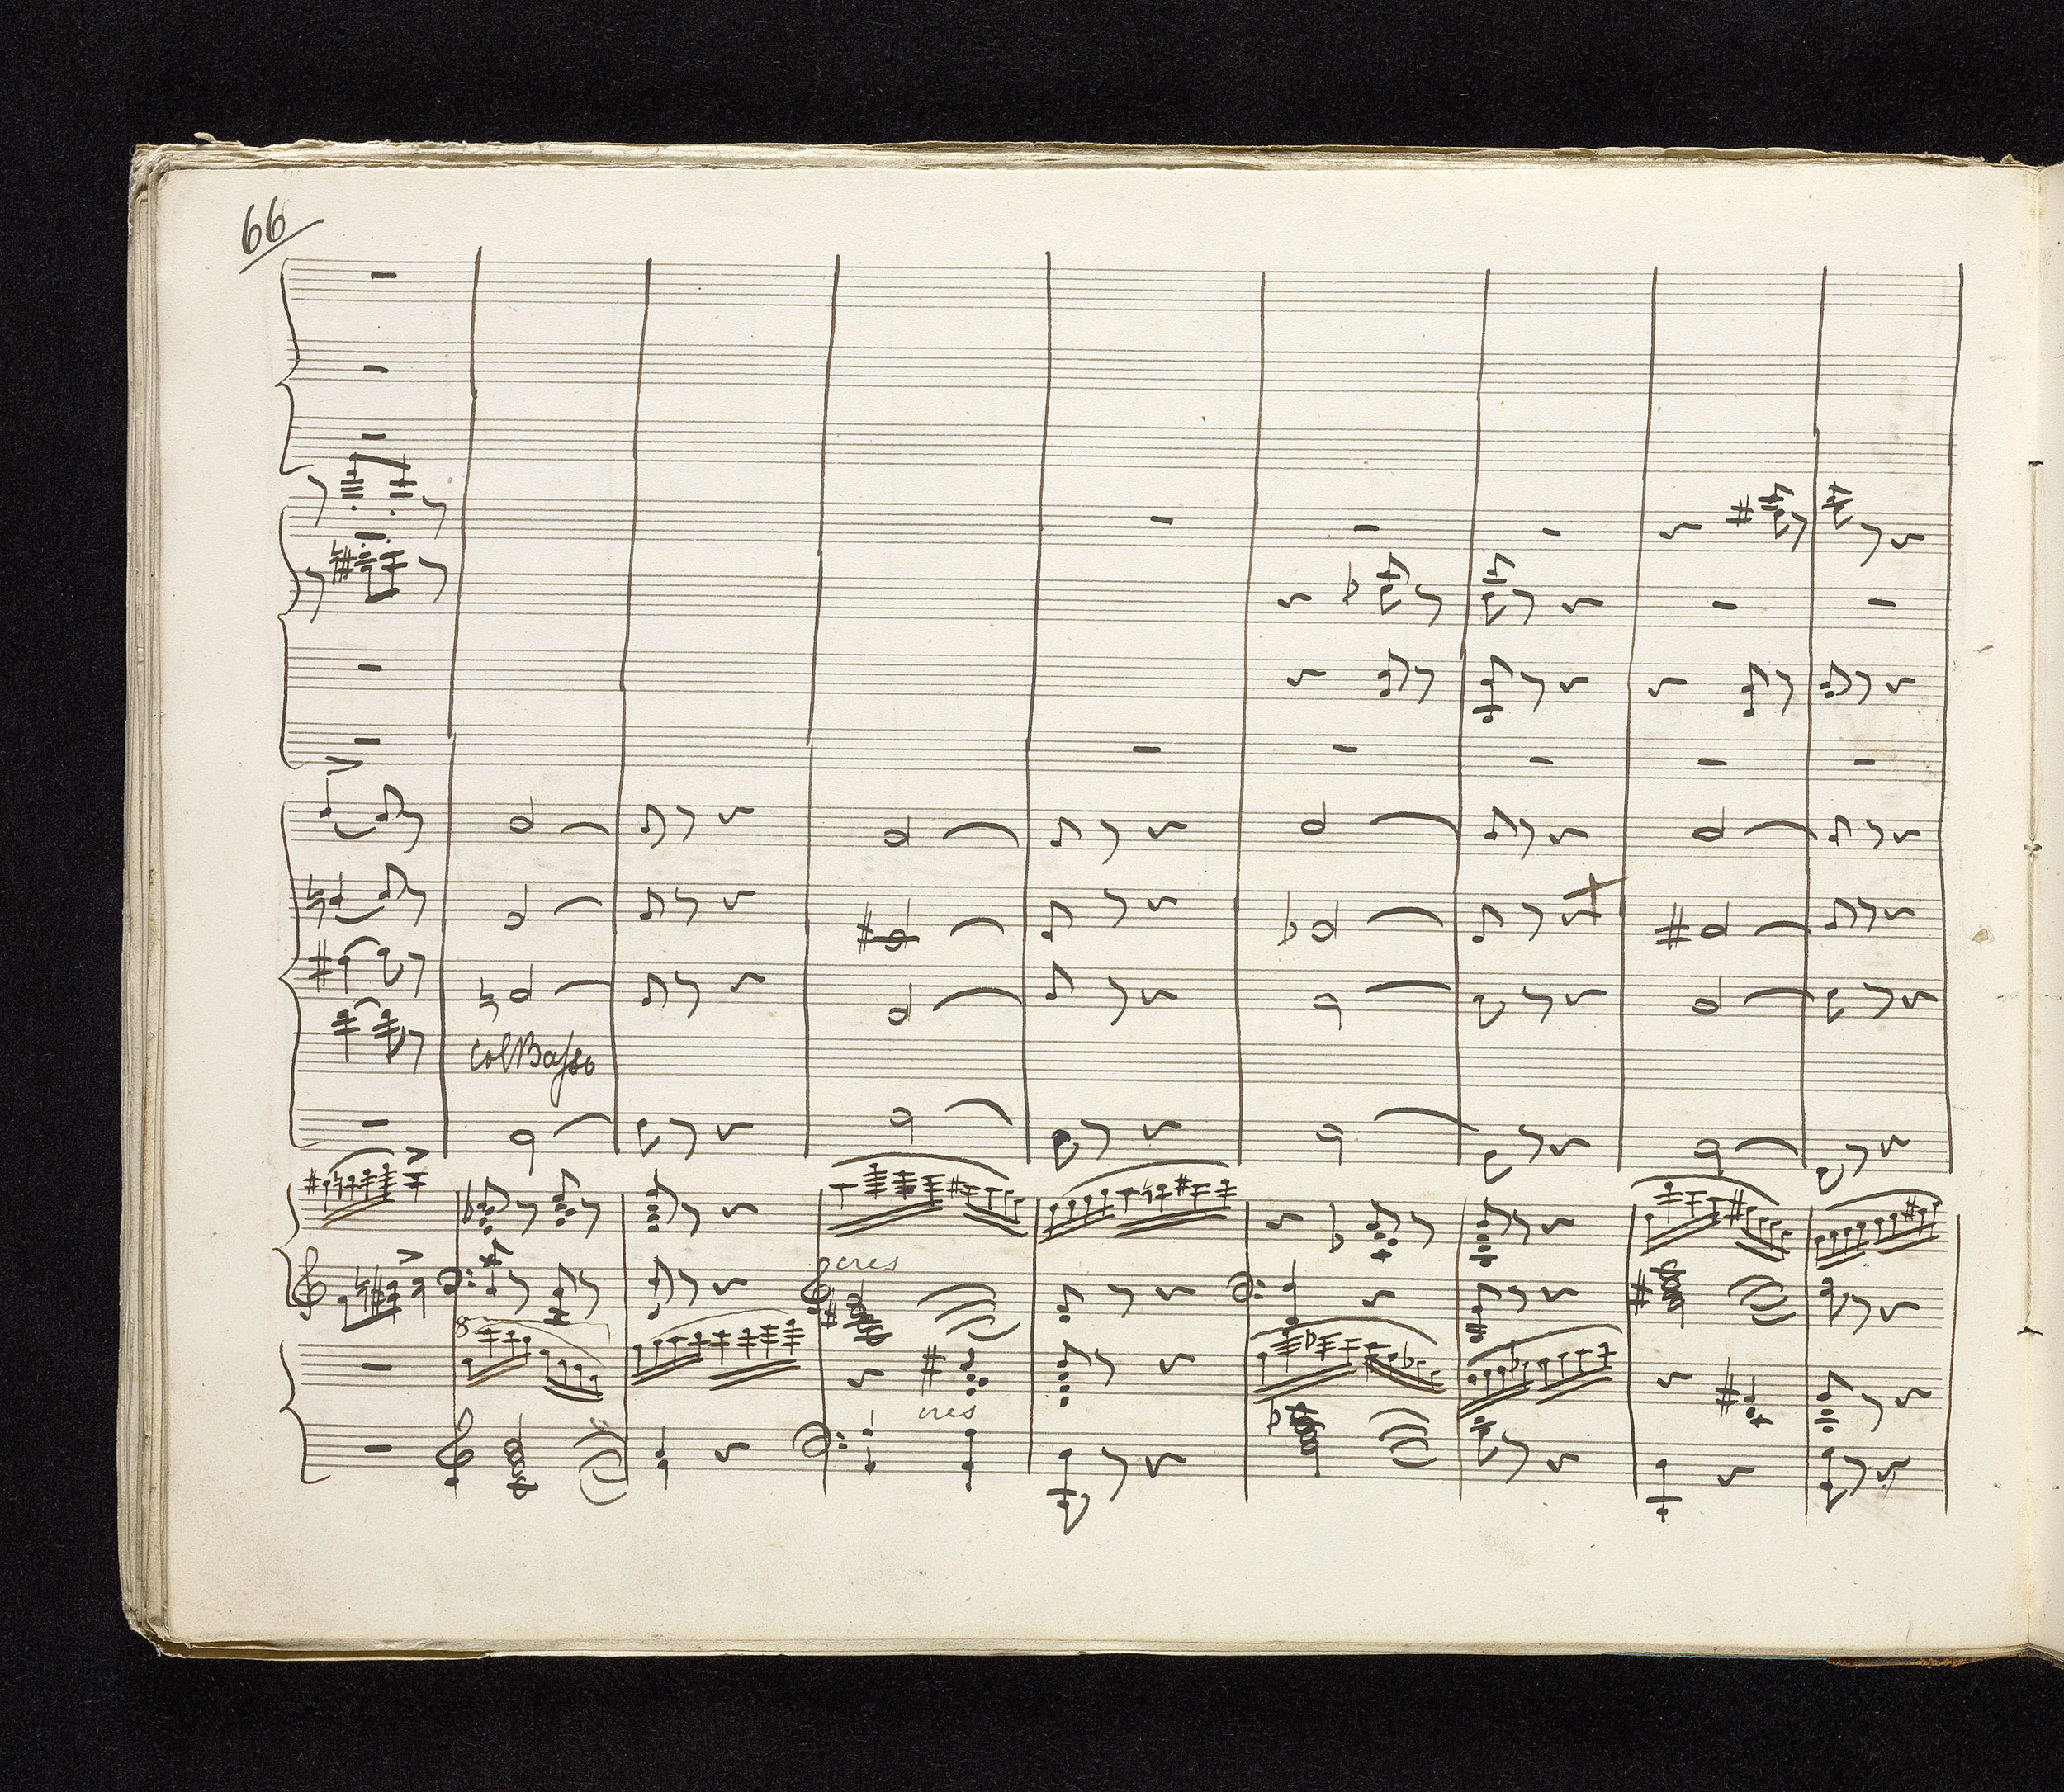 66
col Basso
cres
8
cres